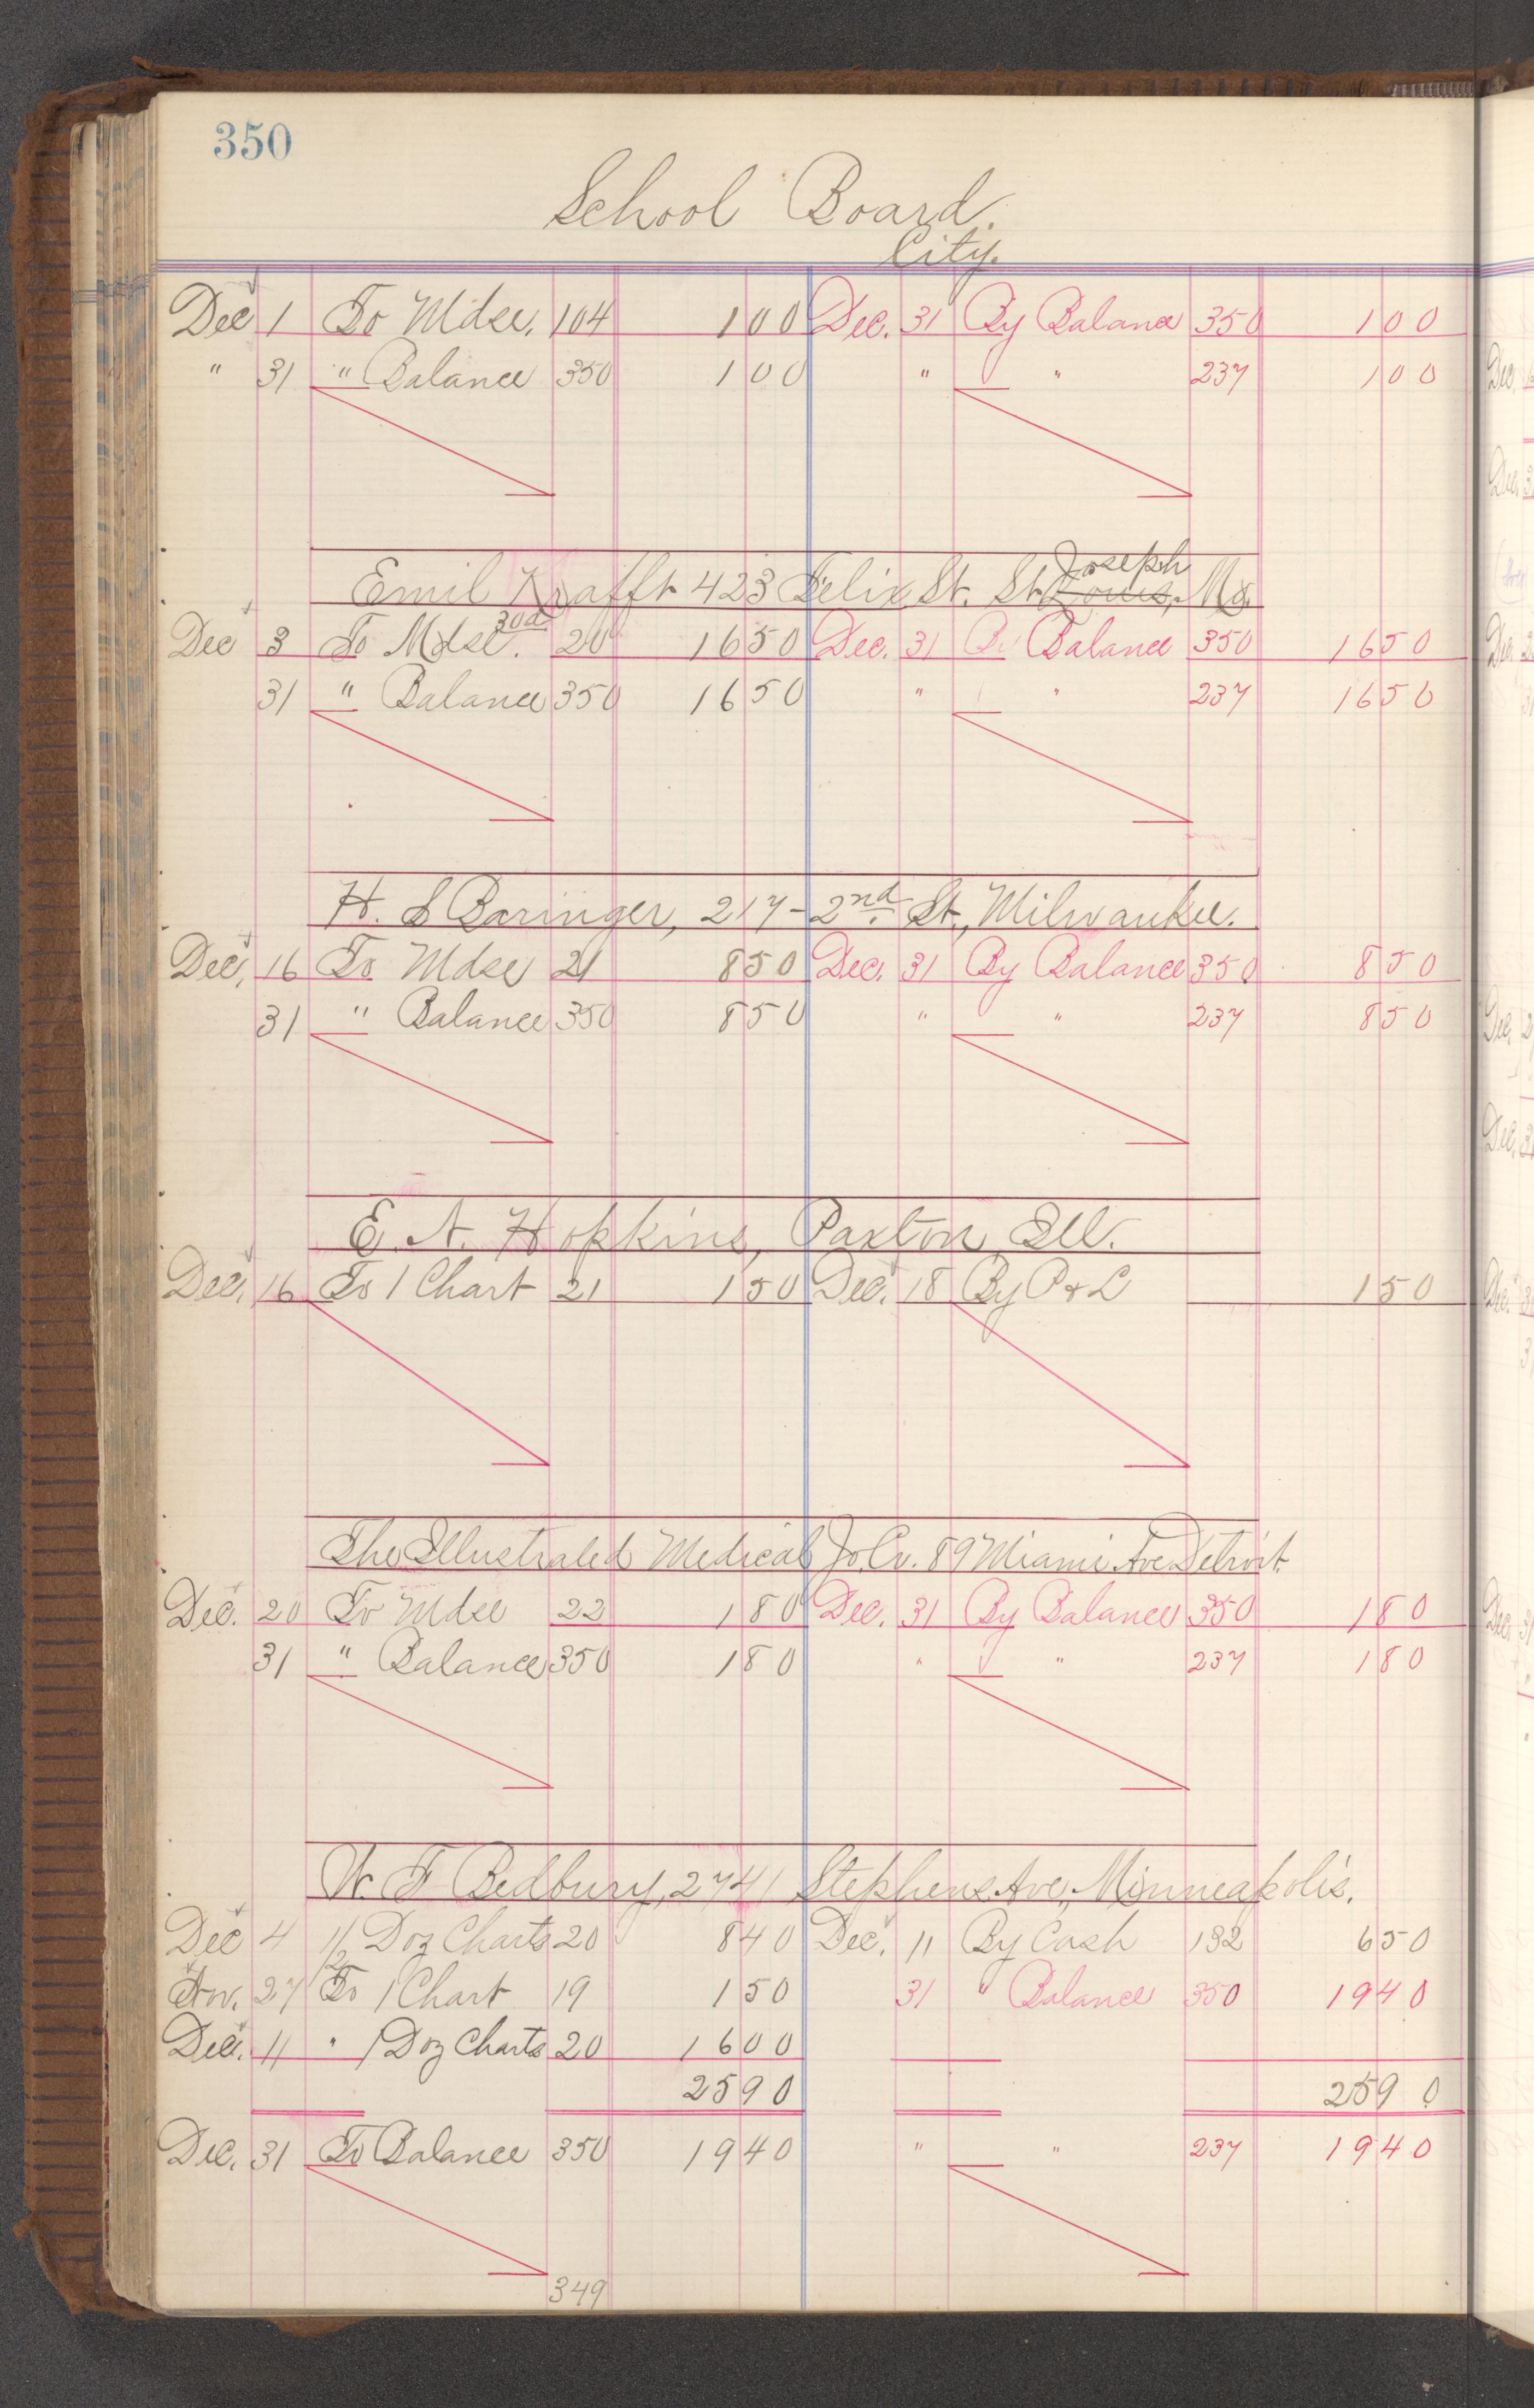 350
School Board.
City.
Dec 1 To Mdse. 104 1 00 Dec. 31 By Balance 350 1 00
" 31 " Balance 350 1 00 " " 237 1 00
Emil Krafft 423 Felix St. St. Louis, Mo. Joseph
Dec 3 To Mdse. 30d 20 16 50 Dec. 31 By Balance 350 16 50
31 " Balance 350 16 50 " " 237 16 50
H. S Baringer, 217 - 2nd St., Milwaukee.
Dec. 16 To Mdse 21 8 50 Dec. 31 By Balance 350 8 50
31 " Balance 350 8 50 " " 237 8 50
E. A. Hopkins, Paxton, Ill.
Dec. 16 To 1 Chart 21 1 50 Dec. 18 By P & L 1 50
The Illustrated Medical Jo. Co. 89 Miami Ave Detroit.
Dec. 20 To Mdse 22 1 80 Dec. 31 By Balance 350 1 80
31 " Balance 350 1 80 " " 237 1 80
W. F Bedbury, 2741 Stephens Ave., Minneapolis.
Dec 4 1/2 Doz Charts 20 8 40 Dec. 11 By Cash 132 6 50
Nov. 27 To 1 Chart 19 1 50 31 " Balance 350 19 40
Dec. 11 " 1 Doz Charts 20 16 00
25 90 25 90
Dec. 31 To Balance 350 19 40 " " 237 19 40
349